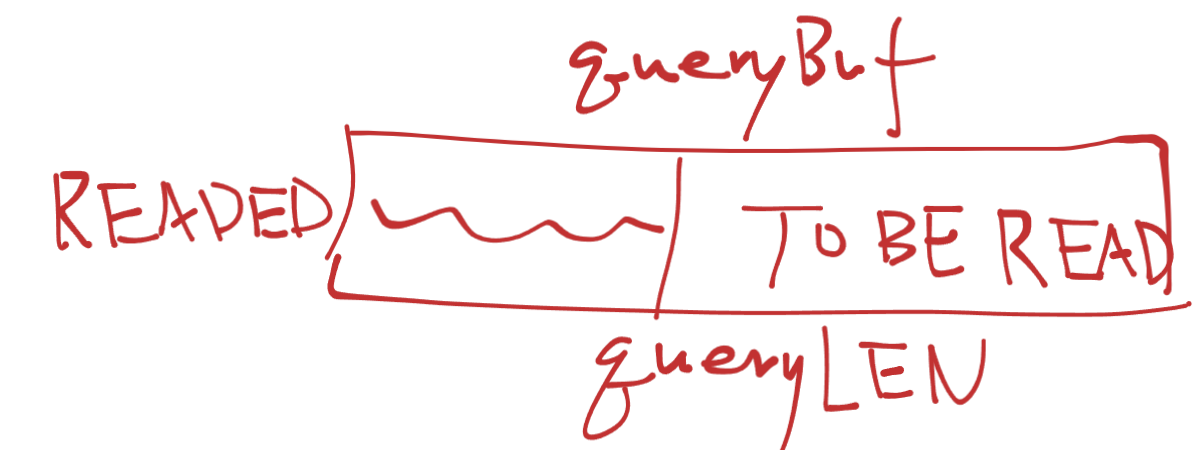 queryBuf
READED TO BE READ
queryLEN